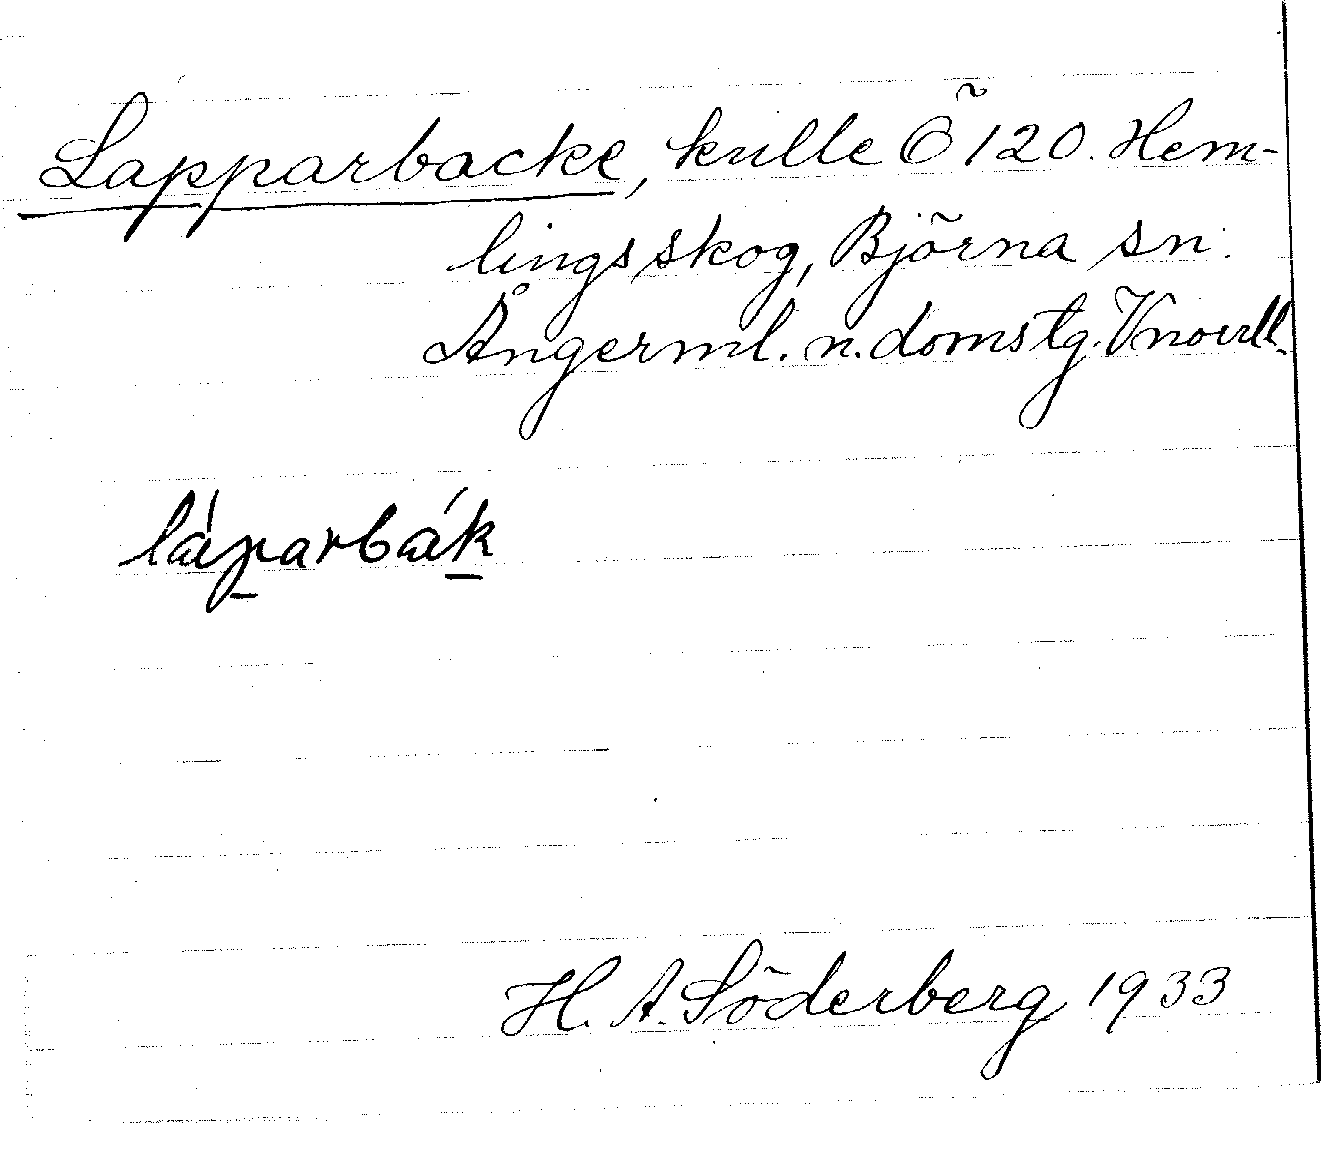 Lapparbacke, kulle Ö 120. Hem-
lingsskog, Björna sn.
Ångerml. n. domstg. Vnorrl.
láparbák
H. A. Söderberg 1933